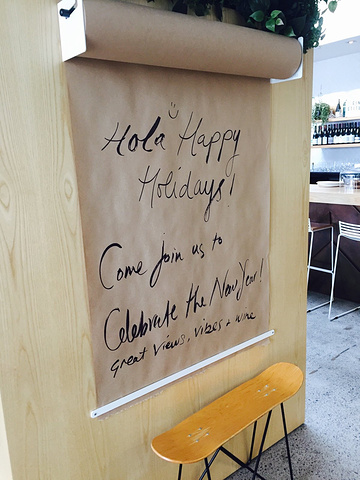 Hola Happy
Holidays!
Come Join us to
Celebrate the New Year!
Great Views, Vibes + Wine